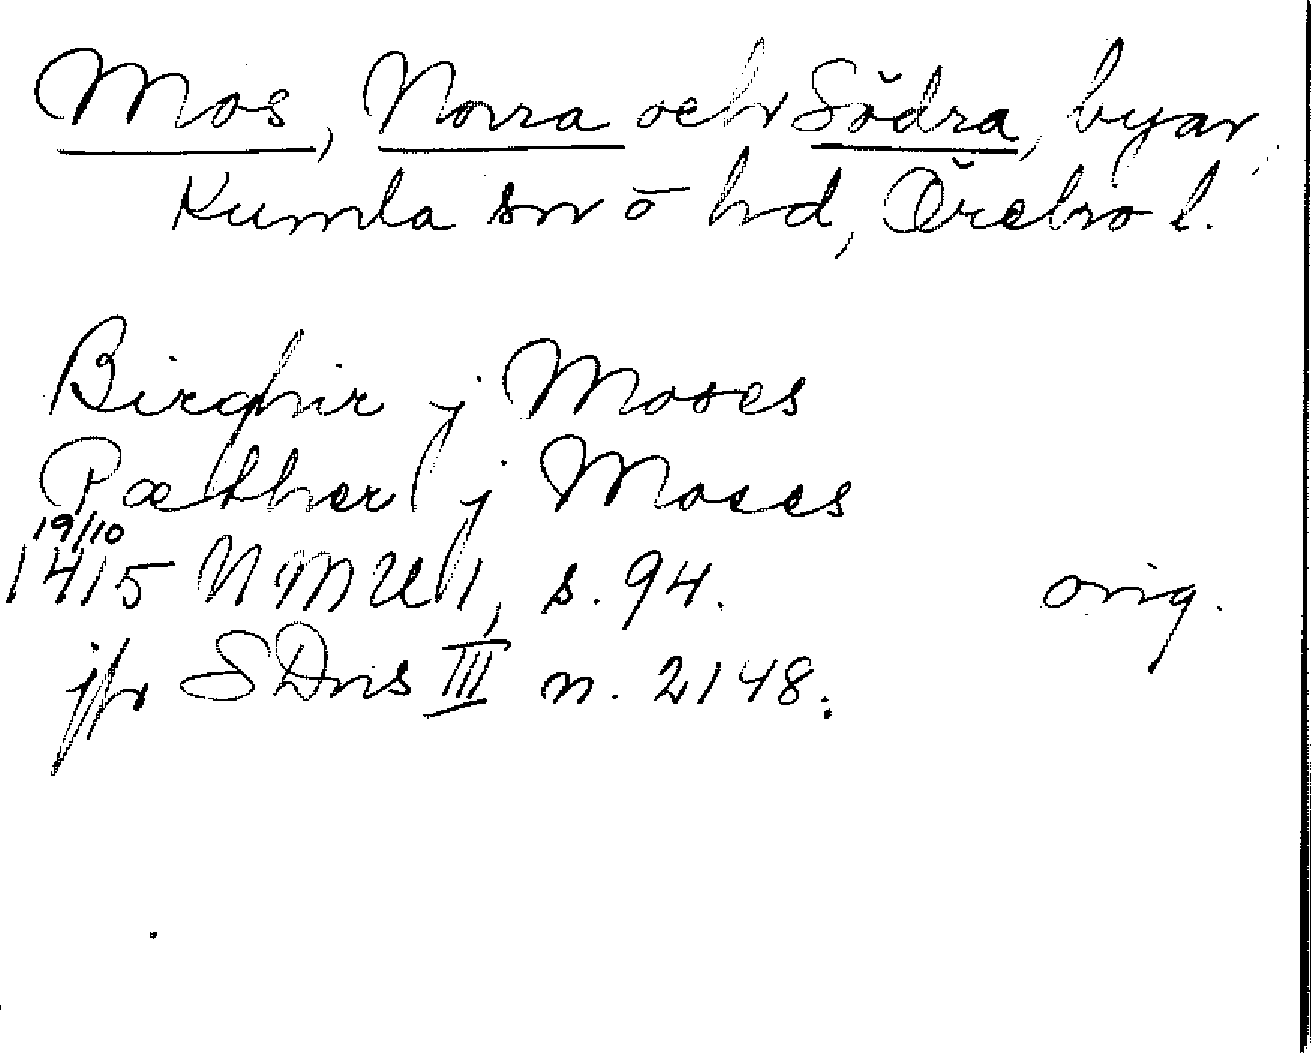 Mos, Norra och Södra, byar,
Kumla sn o hd, Örebro l.
Birghir j Moses
Pæthher j Moses
19/10
1415 NMU 1, s. 94. orig.
jfr SDns III n. 2148.